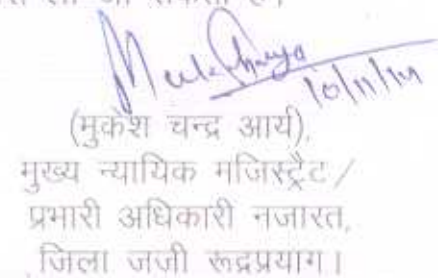 10/11/14
(मुकेश चन्द्र आर्य),
मुख्य न्यायिक मजिस्ट्रैट/
प्रभारी अधिकारी नजारत,
जिला जजी रूद्रप्रयाग।